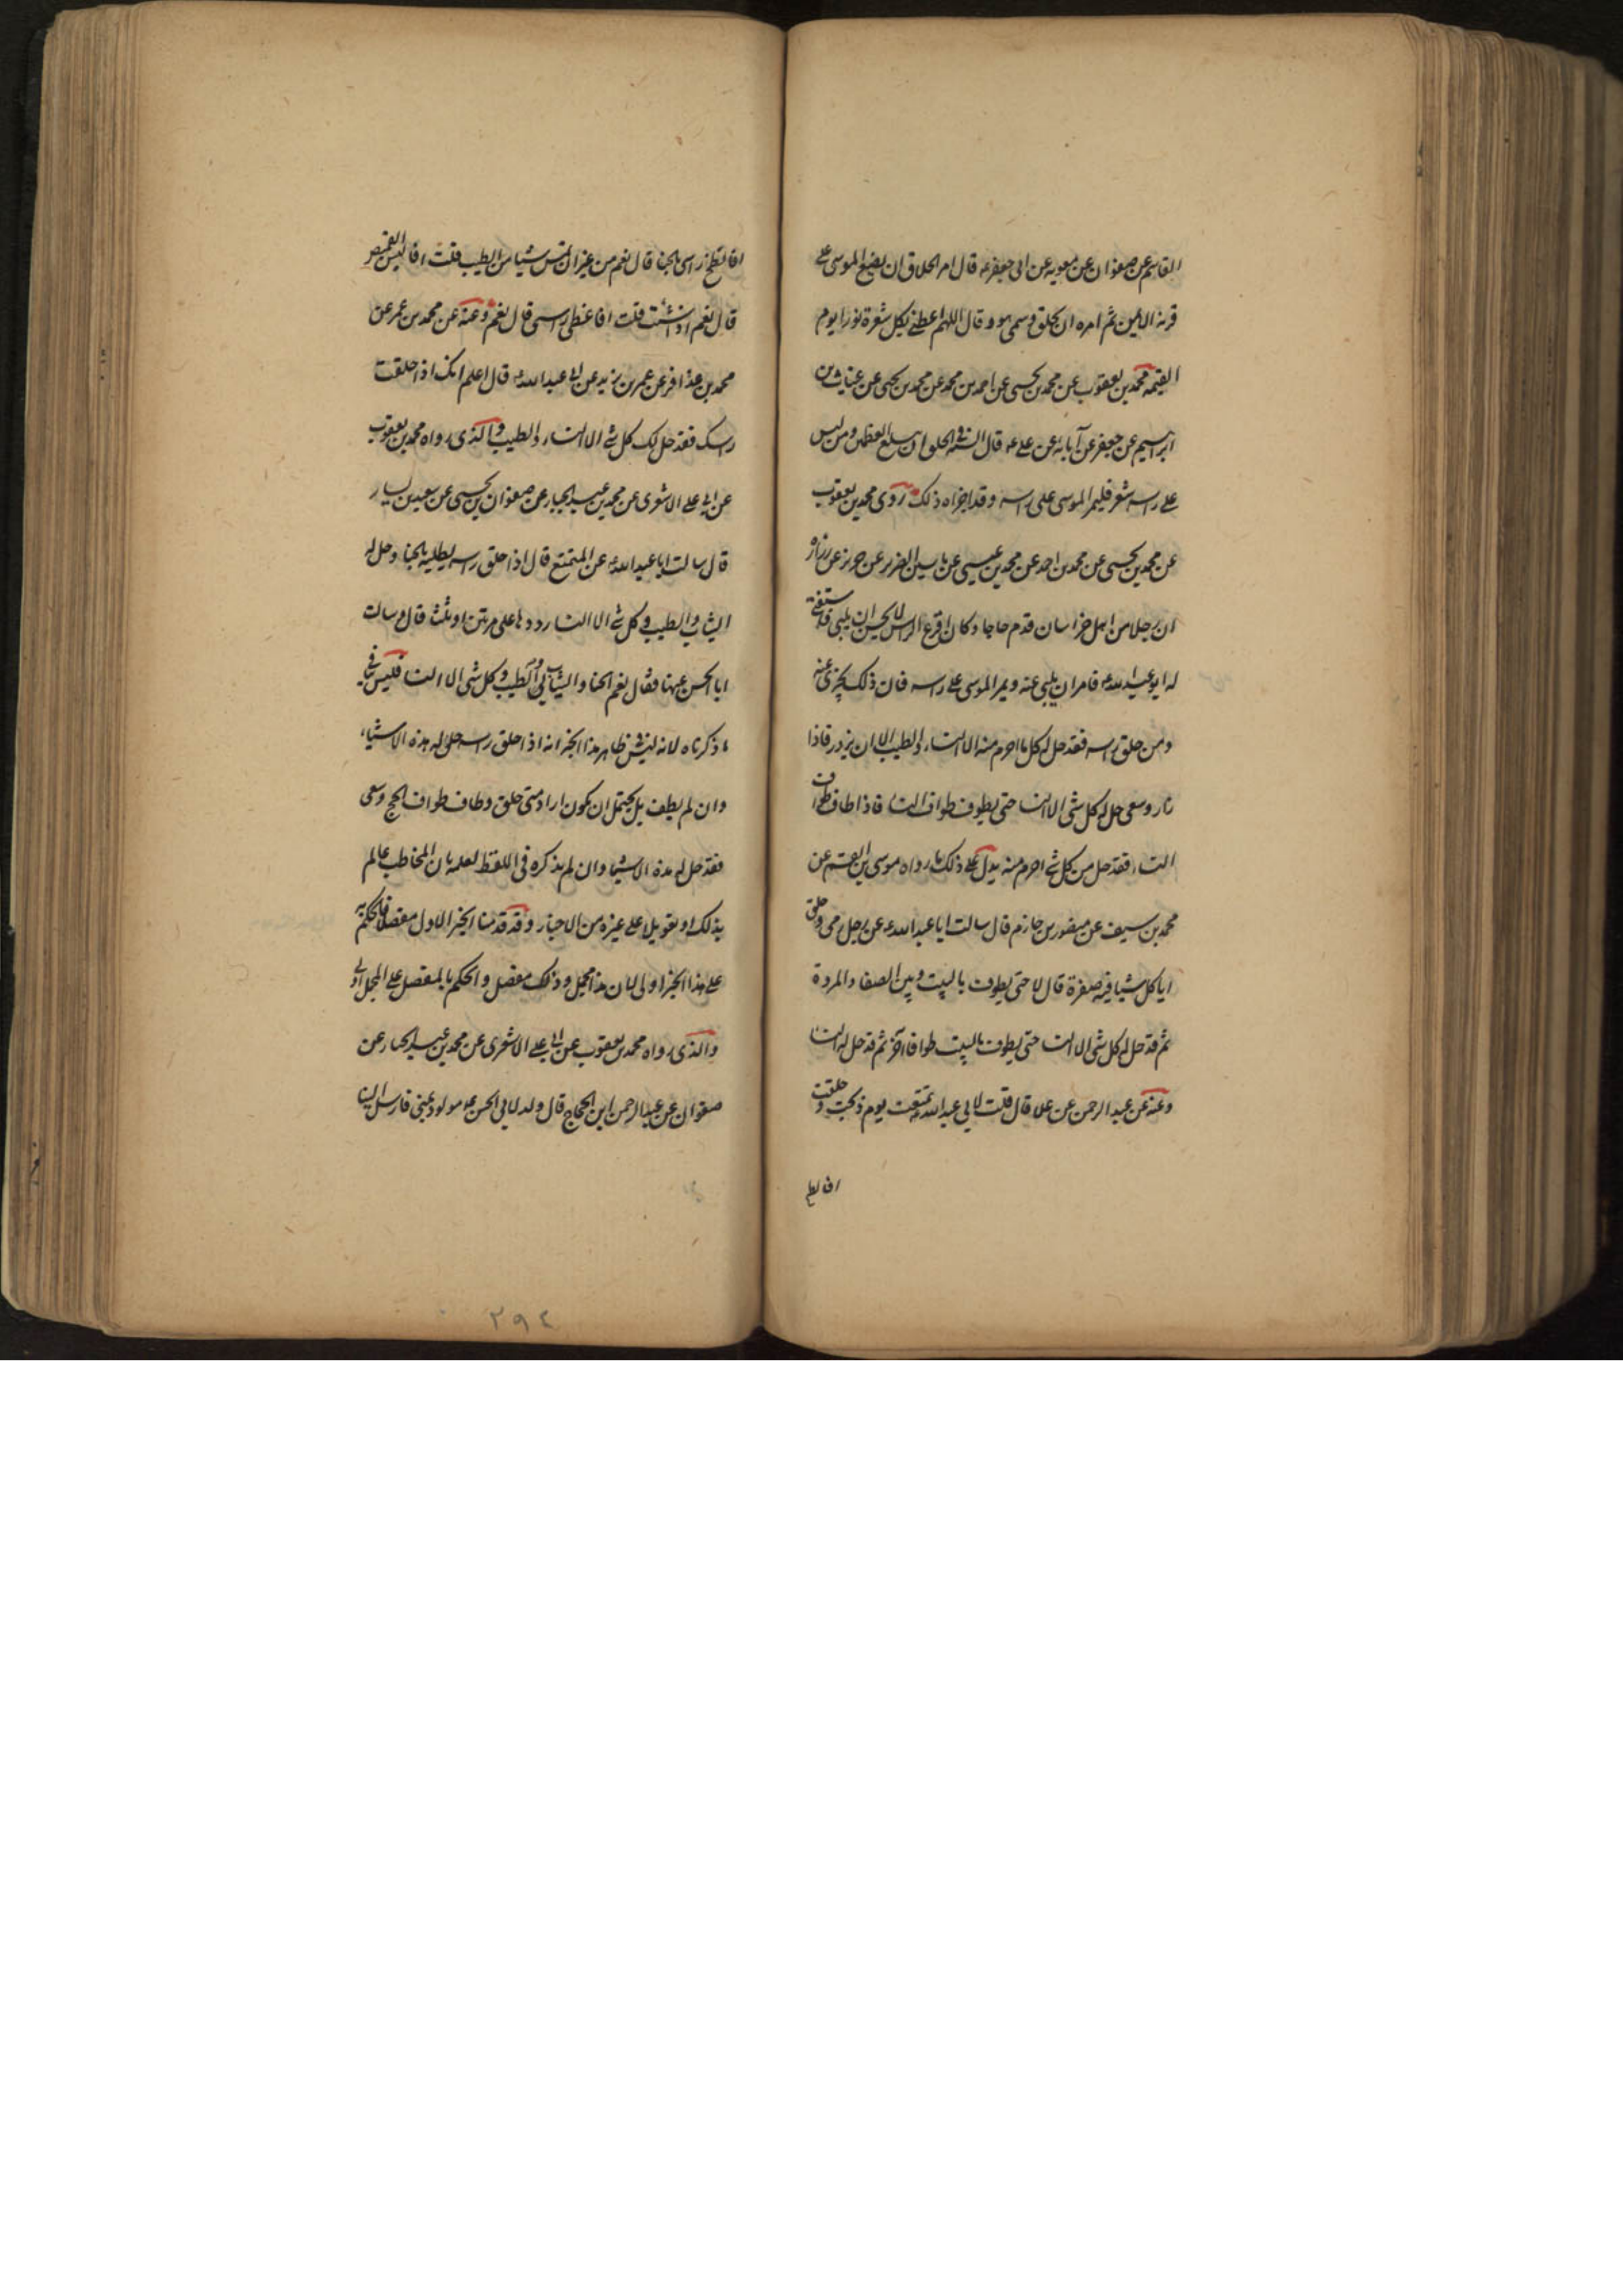 القاسم عن صفوان عن معويه عن ابى جعفر ع قال امر الحلاق ان يضع الموسى على
قرنه الايمن ثم امره ان يحلق وسمى هو و قال اللهم اعطنى بكل شعرة نورا يوم
القيمه محمد بن يعقوب عن محمد بن يحيى عن احمد بن محمد عن محمد بن يحيى عن غياث بن
ابرهيم عن جعفر عن آبائه عن على ع قال السنة فى الحلق ان يبلغ العظمين و من ليس
على راسه شعر فليمر الموسى على راسه وقد اجزاه ذلك روى محمد بن يعقوب
عن محمد بن يحيى عن محمد بن احمد عن محمد بن عيسى عن ياسين الضرير عن حريز عن زراره
ان رجلا من اهل خراسان قدم حاجا وكان اقرع الراس لا يحسن ان يلبى فاستفتى
له ابو عبد الله ع فامر ان يلبى عنه ويمر الموسى على راسه فان ذلك يجزى عنه
ومن حلق راسه فقد حل له كل ما احرم منه الا النساء والطيب الا ان يزور فاذا
زار وسعى حل له كل شى الا النسا حتى يطوف طواف النسا فاذا طاف طواف
النساء فقد حل من كل شى احرم منه يدل على ذلك ما رواه موسى بن القسم عن
محمد بن سيف عن منصور بن حازم قال سالت ابا عبد الله ع عن رجل رمى و حلق
اياكل شيا فيه صفرة قال لا حتى يطوف بالبيت و بين الصفا والمروة
ثم قد حل له كل شى الا النسا حتى يطوف بالبيت طوافا آخر ثم قد حل له النسا
وعنه عن عبد الرحمن عن علا قال قلت لابى عبد الله ع تمتعت يوم ذبحت و حلقت
افالطخ
افالطخ راسى بالحنا قال نعم من غير ان تمس شيا من الطيب قلت افالبس القميص
قال نعم اذا شئت قلت افاغطى راسى قال نعم وعنه عن محمد بن عمر عن
محمد بن عذافر عن عمر بن يزيد عن ابى عبد الله ع قال اعلم انك اذا حلقت
راسك فقد حل لك كل شى الا النساء والطيب والذى رواه محمد بن يعقوب
عن ابى على الاشعرى عن محمد بن عبد الجبار عن صفوان بن يحيى عن سعيد بن يسار
قال سالت ابا عبد الله ع عن المتمتع قال اذا حلق راسه يطليه بالحنا وحل له
الثياب والطيب و كل شى الا النسا رددها على مرتين او ثلث قال وسالت
ابا الحسن ع عنها فقال نعم الحنا والثياب والطيب و كل شى الا النسا فليس ينافى
ما ذكرناه لانه ليس فى ظاهر هذا الخبر انه اذا حلق راسه حل له هذه الاشياء
وان لم يطف بل يحتمل ان يكون اراد متى حلق وطاف طواف الحج وسعى
فقد حل له هذه الاشيا وان لم يذكره فى اللفظ لعلمه بان المخاطب عالم
بذلك او تعويلا على غيره من الاخبار وقد قدمنا الخبر الاول مفصلا فالحكم به
على هذا الخبر اولى لان هذا مجمل وذلك مفصل والحكم بالمفصل على المجمل اولى
والذى رواه محمد بن يعقوب عن ابى على الاشعرى عن محمد بن عبد الجبار عن
صفوان عن عبد الرحمن ابن الحجاج قال ولد لابى الحسن ع مولود بمنى فارسل الينا
٢٩٤